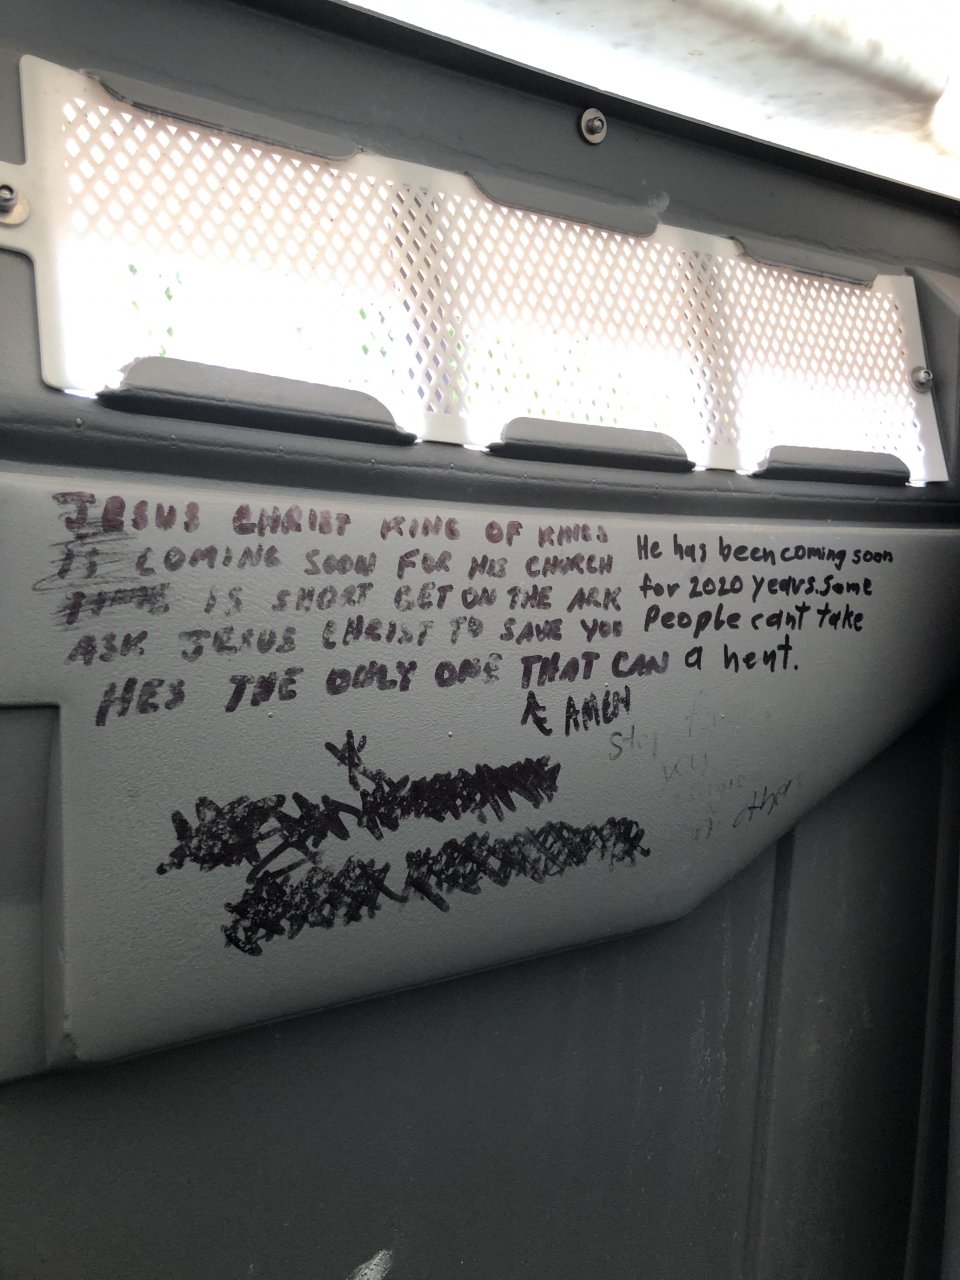 JESUS CHRIST KING OF KINGS
IS COMING SOON FOR HIS CHURCH
TIME IS SHORT GET ON THE ARK
ASK JESUS CHRIST TO SAVE YOU
HES THE ONLY ONE THAT CAN
AMEN
He has been coming soon
for 2020 years. Some
People can't take
a hent.
Stop
you
other